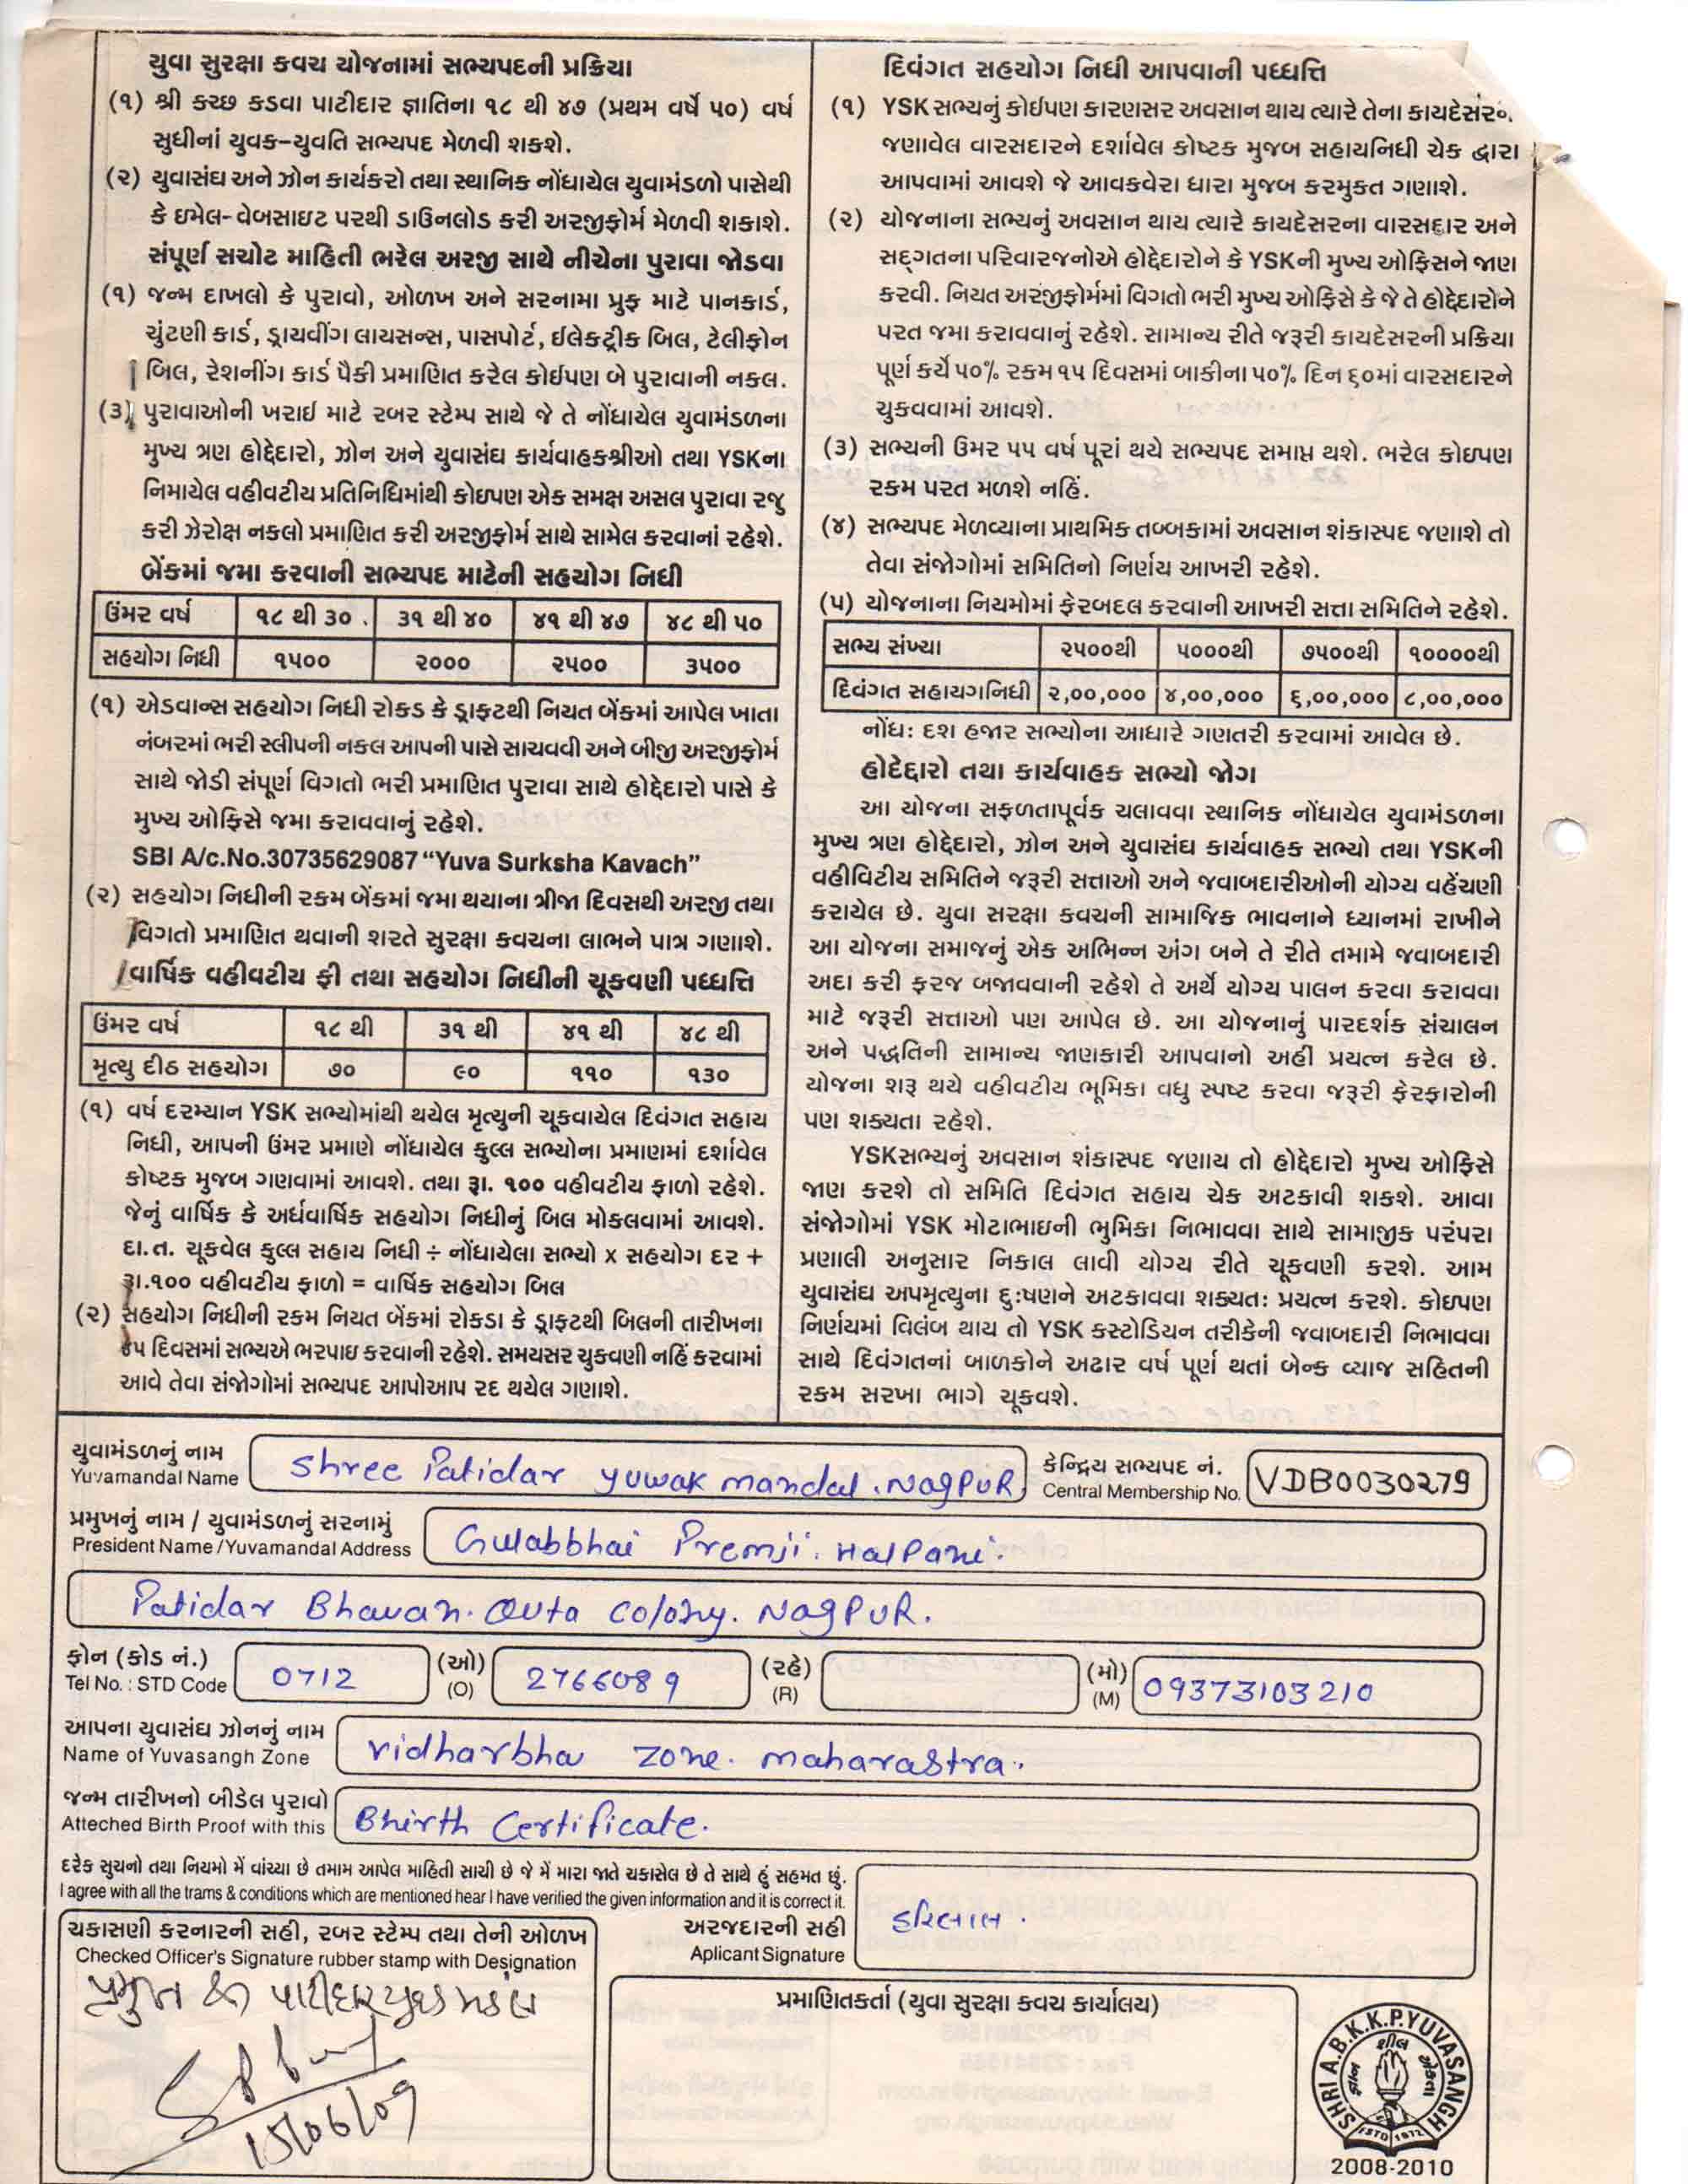 યુવા સુરક્ષા કવચ યોજનામાં સભ્યપદની પ્રક્રિયા
(૧) શ્રી કચ્છ કડવા પાટીદાર જ્ઞાતિના ૧૮ થી ૪૭ (પ્રથમ વર્ષે ૫૦) વર્ષ
સુધીનાં યુવક–યુવતિ સભ્યપદ મેળવી શકશે.
(૨) યુવાસંઘ અને ઝોન કાર્યકરો તથા સ્થાનિક નોંધાયેલ યુવામંડળો પાસેથી
કે ઇમેલ-વેબસાઇટ પરથી ડાઉનલોડ કરી અરજીફોર્મ મેળવી શકાશે.
સંપૂર્ણ સચોટ માહિતી ભરેલ અરજી સાથે નીચેના પુરાવા જોડવા
(૧) જન્મ દાખલો કે પુરાવો, ઓળખ અને સરનામા પ્રુફ માટે પાનકાર્ડ,
ચુંટણી કાર્ડ, ડ્રાયવીંગ લાયસન્સ, પાસપોર્ટ, ઈલેક્ટ્રીક બિલ, ટેલીફોન
બિલ, રેશનીંગ કાર્ડ પૈકી પ્રમાણિત કરેલ કોઈપણ બે પુરાવાની નકલ.
(૩) પુરાવાઓની ખરાઇ માટે રબર સ્ટેમ્પ સાથે જે તે નોંધાયેલ યુવામંડળના
મુખ્ય ત્રણ હોદ્દેદારો, ઝોન અને યુવાસંઘ કાર્યવાહકશ્રીઓ તથા YSKના
નિમાયેલ વહીવટીય પ્રતિનિધિમાંથી કોઇપણ એક સમક્ષ અસલ પુરાવા રજુ
કરી ઝેરોક્ષ નકલો પ્રમાણિત કરી અરજીફોર્મ સાથે સામેલ કરવાનાં રહેશે.
બેંકમાં જમા કરવાની સભ્યપદ માટેની સહયોગ નિધી
ઉંમર વર્ષ ૧૮ થી ૩૦ ૩૧ થી ૪૦ ૪૧ થી ૪૭ ૪૮ થી ૫૦
સહયોગ નિધી ૧૫૦૦ ૨૦૦૦ ૨૫૦૦ ૩૫૦૦
(૧) એડવાન્સ સહયોગ નિધી રોકડ કે ડ્રાફ્ટથી નિયત બેંકમાં આપેલ ખાતા
નંબરમાં ભરી સ્લીપની નકલ આપની પાસે સાચવવી અને બીજી અરજીફોર્મ
સાથે જોડી સંપૂર્ણ વિગતો ભરી પ્રમાણિત પુરાવા સાથે હોદ્દેદારો પાસે કે
મુખ્ય ઓફિસે જમા કરાવવાનું રહેશે.
SBI A/c.No.30735629087 “Yuva Surksha Kavach”
(૨) સહયોગ નિધીની રકમ બેંકમાં જમા થયાના ત્રીજા દિવસથી અરજી તથા
વિગતો પ્રમાણિત થવાની શરતે સુરક્ષા કવચના લાભને પાત્ર ગણાશે.
વાર્ષિક વહીવટીય ફી તથા સહયોગ નિધીની ચૂકવણી પધ્ધત્તિ
ઉંમર વર્ષ ૧૮ થી ૩૧ થી ૪૧ થી ૪૮ થી
મૃત્યુ દીઠ સહયોગ ૭૦ ૯૦ ૧૧૦ ૧૩૦
(૧) વર્ષ દરમ્યાન YSK સભ્યોમાંથી થયેલ મૃત્યુની ચૂકવાયેલ દિવંગત સહાય
નિધી, આપની ઉંમર પ્રમાણે નોંધાયેલ કુલ્લ સભ્યોના પ્રમાણમાં દર્શાવેલ
કોષ્ટક મુજબ ગણવામાં આવશે. તથા રૂા. ૧૦૦ વહીવટીય ફાળો રહેશે.
જેનું વાર્ષિક કે અર્ધવાર્ષિક સહયોગ નિધીનું બિલ મોકલવામાં આવશે.
દા.ત. ચૂકવેલ કુલ્લ સહાય નિધી ÷ નોંધાયેલા સભ્યો x સહયોગ દર +
રૂા.૧૦૦ વહીવટીય ફાળો = વાર્ષિક સહયોગ બિલ
(૨) સહયોગ નિધીની રકમ નિયત બેંકમાં રોકડા કે ડ્રાફ્ટથી બિલની તારીખના
દિવસમાં સભ્યએ ભરપાઇ કરવાની રહેશે. સમયસર ચુકવણી નહિં કરવામાં
આવે તેવા સંજોગોમાં સભ્યપદ આપોઆપ રદ થયેલ ગણાશે.
દિવંગત સહયોગ નિધી આપવાની પધ્ધત્તિ
(૧) YSK સભ્યનું કોઈપણ કારણસર અવસાન થાય ત્યારે તેના
જણાવેલ વારસદારને દર્શાવેલ કોષ્ટક મુજબ સહાયનિધી ચેક દ્વારા
આપવામાં આવશે જે આવકવેરા ધારા મુજબ કરમુક્ત ગણાશે.
(૨) યોજનાના સભ્યનું અવસાન થાય ત્યારે કાયદેસરના વારસદાર અને
સદ્ગતના પરિવારજનોએ હોદ્દેદારોને કે YSKની મુખ્ય ઓફિસને જાણ
કરવી. નિયત અરજીફોર્મમાં વિગતો ભરી મુખ્ય ઓફિસે કે જે તે હોદ્દેદારોને
પરત જમા કરાવવાનું રહેશે. સામાન્ય રીતે જરૂરી કાયદેસરની પ્રક્રિયા
પૂર્ણ કર્યે ૫૦% રકમ ૧૫ દિવસમાં બાકીના ૫૦% દિન ૬૦માં વારસદારને
ચુકવવામાં આવશે.
(૩) સભ્યની ઉમર ૫૫ વર્ષ પૂરાં થયે સભ્યપદ સમાપ્ત થશે. ભરેલ કોઇપણ
રકમ પરત મળશે નહિં.
(૪) સભ્યપદ મેળવ્યાના પ્રાથમિક તબ્બકામાં અવસાન શંકાસ્પદ જણાશે તો
તેવા સંજોગોમાં સમિતિનો નિર્ણય આખરી રહેશે.
(૫) યોજનાના નિયમોમાં ફેરબદલ કરવાની આખરી સત્તા સમિતિને રહેશે.
સભ્ય સંખ્યા ૨૫૦૦થી ૫૦૦૦થી ૭૫૦૦થી ૧૦૦૦૦થી
દિવંગત સહાયગનિધી ૨,૦૦,૦૦૦ ૪,૦૦,૦૦૦ ૬,૦૦,૦૦૦ ૮,૦૦,૦૦૦
નોંધ: દશ હજાર સભ્યોના આધારે ગણતરી કરવામાં આવેલ છે.
હોદેદ્દારો તથા કાર્યવાહક સભ્યો જોગ
આ યોજના સફળતાપૂર્વક ચલાવવા સ્થાનિક નોંધાયેલ યુવામંડળના
મુખ્ય ત્રણ હોદ્દેદારો, ઝોન અને યુવાસંઘ કાર્યવાહક સભ્યો તથા YSKની
વહીવિટીય સમિતિને જરૂરી સત્તાઓ અને જવાબદારીઓની યોગ્ય વહેંચણી
કરાયેલ છે. યુવા સરક્ષા કવચની સામાજિક ભાવનાને ધ્યાનમાં રાખીને
આ યોજના સમાજનું એક અભિન્ન અંગ બને તે રીતે તમામે જવાબદારી
અદા કરી ફરજ બજાવવાની રહેશે તે અર્થે યોગ્ય પાલન કરવા કરાવવા
માટે જરૂરી સત્તાઓ પણ આપેલ છે. આ યોજનાનું પારદર્શક સંચાલન
અને પદ્ધતિની સામાન્ય જાણકારી આપવાનો અહીં પ્રયત્ન કરેલ છે.
યોજના શરૂ થયે વહીવટીય ભૂમિકા વધુ સ્પષ્ટ કરવા જરૂરી ફેરફારોની
પણ શક્યતા રહેશે.
YSKસભ્યનું અવસાન શંકાસ્પદ જણાય તો હોદ્દેદારો મુખ્ય ઓફિસે
જાણ કરશે તો સમિતિ દિવંગત સહાય ચેક અટકાવી શકશે. આવા
સંજોગોમાં YSK મોટાભાઇની ભુમિકા નિભાવવા સાથે સામાજીક પરંપરા
પ્રણાલી અનુસાર નિકાલ લાવી યોગ્ય રીતે ચૂકવણી કરશે. આમ
યુવાસંઘ અપમૃત્યુના દુઃષણને અટકાવવા શક્યતઃ પ્રયત્ન કરશે. કોઇપણ
નિર્ણયમાં વિલંબ થાય તો YSK કસ્ટોડિયન તરીકેની જવાબદારી નિભાવવા
સાથે દિવંગતનાં બાળકોને અઢાર વર્ષ પૂર્ણ થતાં બેન્ક વ્યાજ સહિતની
રકમ સરખા ભાગે ચૂકવશે.
યુવામંડળનું નામ
Yuvamandal Name Shree Patidar yuwak mandal. NAgPUR
કેન્દ્રિય સભ્યપદ નં.
Central Membership No. VDB0030279
પ્રમુખનું નામ / યુવામંડળનું સરનામું
President Name /Yuvamandal Address Gulabbhai Premji. HalPani.
Patidar Bhavan. Quta Colony. NAgPUR.
ફોન (કોડ નં.) (ઓ) (રહે) (મો)
Tel No. : STD Code 0712 (O) 2766089 (R) (M) 09373103210
આપના યુવાસંઘ ઝોનનું નામ
Name of Yuvasangh Zone vidharbha zone. maharastra.
જન્મ તારીખનો બીડેલ પુરાવો
Atteched Birth Proof with this Bhirth Certificate.
દરેક સુચનો તથા નિયમો મેં વાંચ્યા છે તમામ આપેલ માહિતી સાચી છે જે મેં મારા જાતે ચકાસેલ છે તે સાથે હું સહમત છું.
I agree with all the trams & conditions which are mentioned hear I have verified the given information and it is correct it.
અરજદારની સહી
Aplicant Signature
ચકાસણી કરનારની સહી, રબર સ્ટેમ્પ તથા તેની ઓળખ
Checked Officer's Signature rubber stamp with Designation
પ્રમુખ શ્રી પાટીદાર યુવક મંડલ
15/06/09
પ્રમાણિતકર્તા (યુવા સુરક્ષા કવચ કાર્યાલય)
SHRI A.B.K.K.P.YUVASANGH
ESTD 1972
2008-2010